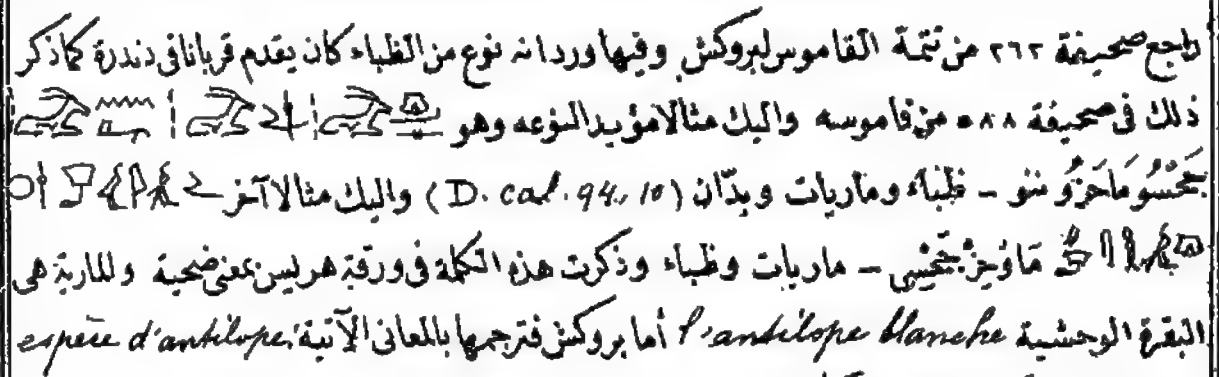 راجع صحيفة ٢٦٢ من تتمة القاموس لبروكش وفيها ورد انه نوع من الظباء كان يقدم قربانا فى دندرة كما ذكر
ذلك فى صحيفة ٥٨٨ من قاموسه واليك مثالا مؤيدا لنوعه وهو
ظباء وماريات وبدّان (D. cal. 94, 10) واليك مثالا آخر
ماريات وظباء وذكرت هذه الكلمة فى ورقة هريس بمعنى ضحية وللمارية هى
البقرة الوحشية l'antilope blanche أما بروكش فترجمها بالمعانى الآتية: espèce d'antilope